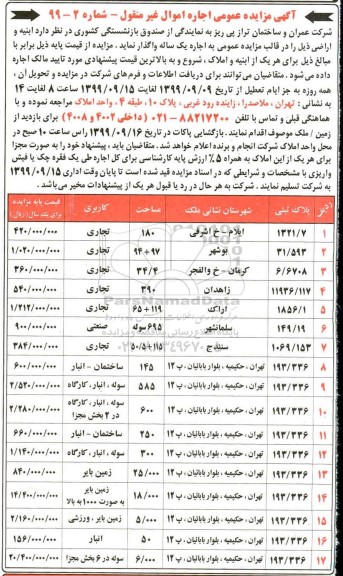 آگهی مزایده عمومی اجاره اموال غیر منقول – شماره ۲ – ۹۹
شرکت عمران و ساختمان تراز پی ریز به نمایندگی از صندوق بازنشستگی کشوری در نظر دارد ابنیه و
اراضی ذیل را در قالب مزایده عمومی به اجاره یک ساله واگذار نماید . مزایده از قیمت پایه ذیل برابر با
مبالغ ذیل برای هر یک از ابنیه و املاک ، شروع و به بالاترین قیمت پیشنهادی مورد تایید مالک اجاره
داده می‌شود . متقاضیان می‌توانند برای دریافت اطلاعات و فرم‌های شرکت در مزایده و تحویل آن ،
همه روزه به جز ایام تعطیل از تاریخ ۱۳۹۹/۰۹/۰۹ لغایت ۱۳۹۹/۰۹/۱۵ ساعت ۸ لغایت ۱۴
به نشانی : تهران ، ملاصدرا ، زاینده رود غربی ، پلاک ۱۰ ، طبقه ۴ ، واحد املاک مراجعه نموده و با
هماهنگی قبلی و تماس با تلفن ۸۸۲۱۷۲۰۰ – ۰۲۱ ( داخلی ۴۰۰۲ و ۴۰۰۸ ) برای بازدید از
زمین / ملک موصوف اقدام نمایند . بازگشایی پاکات در تاریخ ۱۳۹۹/۰۹/۱۶ راس ساعت ۱۰ صبح در
محل واحد املاک شرکت انجام و برنده اعلام خواهد شد . متقاضیان باید ، پیشنهاد خود را به صورت مجزا
برای هر یک از این املاک به همراه ۵٪ ارزش پایه کارشناسی برای کل اجاره طی یک فقره چک یا فیش
واریزی با مشخصات و شرایطی که در اسناد مزایده قید شده است تا پایان وقت اداری ۱۳۹۹/۰۹/۱۵
به شرکت تسلیم نمایند . شرکت به هر حال در رد یا قبول هر یک از پیشنهادات مخیر می‌باشد .
پلاک ثبتی شهرستان نشانی ملک مساحت کاربری قیمت پایه مزایده برای یک سال (ریال)
۱ ۱۳۲۱/۷ ایلام – خ اشرفی ۱۸۰ تجاری ۴۲۰/۰۰۰/۰۰۰
۲ ۳۱/۵۹۳ بوشهر ۹۴+۹۷ تجاری ۱/۰۲۰/۰۰۰/۰۰۰
۳ ۶/۶۷۰۸ کرمان – خ والفجر ۳۴/۴ تجاری ۳۶۰/۰۰۰/۰۰۰
۴ ۱۱۹۳۶/۱۱۷ زاهدان ۳۹۰ تجاری ۵۴۰/۰۰۰/۰۰۰
۵ ۱۸۵۶/۱ اراک ۶۵+۱۱۹ تجاری ۱/۲۱۲/۰۰۰/۰۰۰
۶ ۱۴۹/۱۹ سلمانشهر ۶۹۵ سوله صنعتی ۹۰۰/۰۰۰/۰۰۰
۷ ۱۰۶۹/۱۵۳ سنندج ۵۰/۵+۱۱۵ تجاری ۳۸۴/۰۰۰/۰۰۰
۸ ۱۹۳/۳۳۶ تهران ، حکیمیه ، بلوار بابائیان ، پ ۱۲ ۱۴۵ ساختمان – انبار ۶۰۰/۰۰۰/۰۰۰
۹ ۱۹۳/۳۳۶ تهران ، حکیمیه ، بلوار بابائیان ، پ ۱۲ ۵۸۵ سوله ، انبار ، کارگاه ۲/۵۲۰/۰۰۰/۰۰۰
۱۰ ۱۹۳/۳۳۶ تهران ، حکیمیه ، بلوار بابائیان ، پ ۱۲ ۶۰۰ سوله ، انبار ، کارگاه در ۲ بخش مجزا ۲/۲۸۰/۰۰۰/۰۰۰
۱۱ ۱۹۳/۳۳۶ تهران ، حکیمیه ، بلوار بابائیان ، پ ۱۲ ۲۵۰ ساختمان – انبار ۶۶۰/۰۰۰/۰۰۰
۱۲ ۱۹۳/۳۳۶ تهران ، حکیمیه ، بلوار بابائیان ، پ ۱۲ ۳۰۰ سوله ، انبار ، کارگاه ۱/۱۴۰/۰۰۰/۰۰۰
۱۳ ۱۹۳/۳۳۶ تهران ، حکیمیه ، بلوار بابائیان ، پ ۱۲ ۲۵/۰۰۰ زمین بایر ۸۴۰/۰۰۰/۰۰۰
۱۴ ۱۹۳/۳۳۶ تهران ، حکیمیه ، بلوار بابائیان ، پ ۱۲ ۱۸/۰۰۰ زمین بایر به صورت ۱۰۰۰ به بالا ۱۴/۴۰۰/۰۰۰/۰۰۰
۱۵ ۱۹۳/۳۳۶ تهران ، حکیمیه ، بلوار بابائیان ، پ ۱۲ ۵/۰۰۰ زمین بایر ، ورزشی ۲/۱۶۰/۰۰۰/۰۰۰
۱۶ ۱۹۳/۳۳۶ تهران ، حکیمیه ، بلوار بابائیان ، پ ۱۲ ۵۰ انبار ۱۵۶/۰۰۰/۰۰۰
۱۷ ۱۹۳/۳۳۶ تهران ، حکیمیه ، بلوار بابائیان ، پ ۱۲ ۶/۰۰۰ سوله در ۶ بخش مجزا ۲۰/۴۰۰/۰۰۰/۰۰۰
ParsNamadData